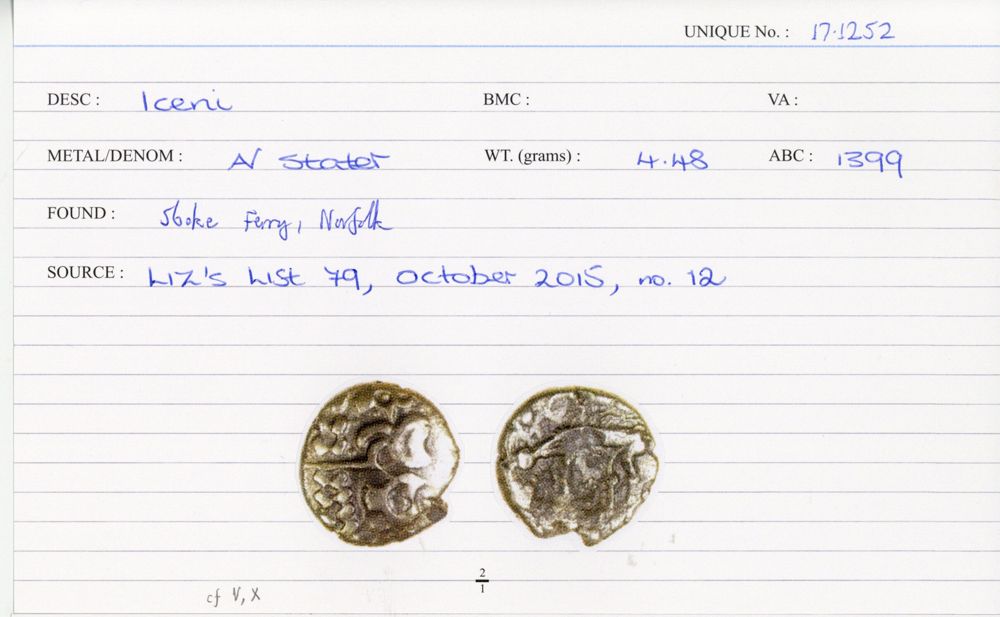 UNIQUE No. : 17.1252
DESC : Iceni BMC : VA :
METAL/DENOM : A/ Stater WT. (grams) : 4.48 ABC : 1399
FOUND : Stoke Ferry, Norfolk
SOURCE : LIZ'S LISt 79, October 2015, no. 12
2
1
cf V, X